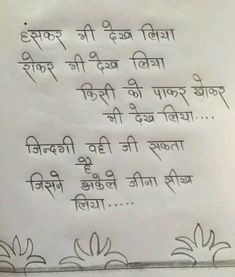 हंसकर भी देख लिया
रोकर भी देख लिया
किसी को पाकर खोकर
भी देख लिया....
जिन्दगी वही जी सकता
है
जिसने अकेले जीना सीख
लिया.....